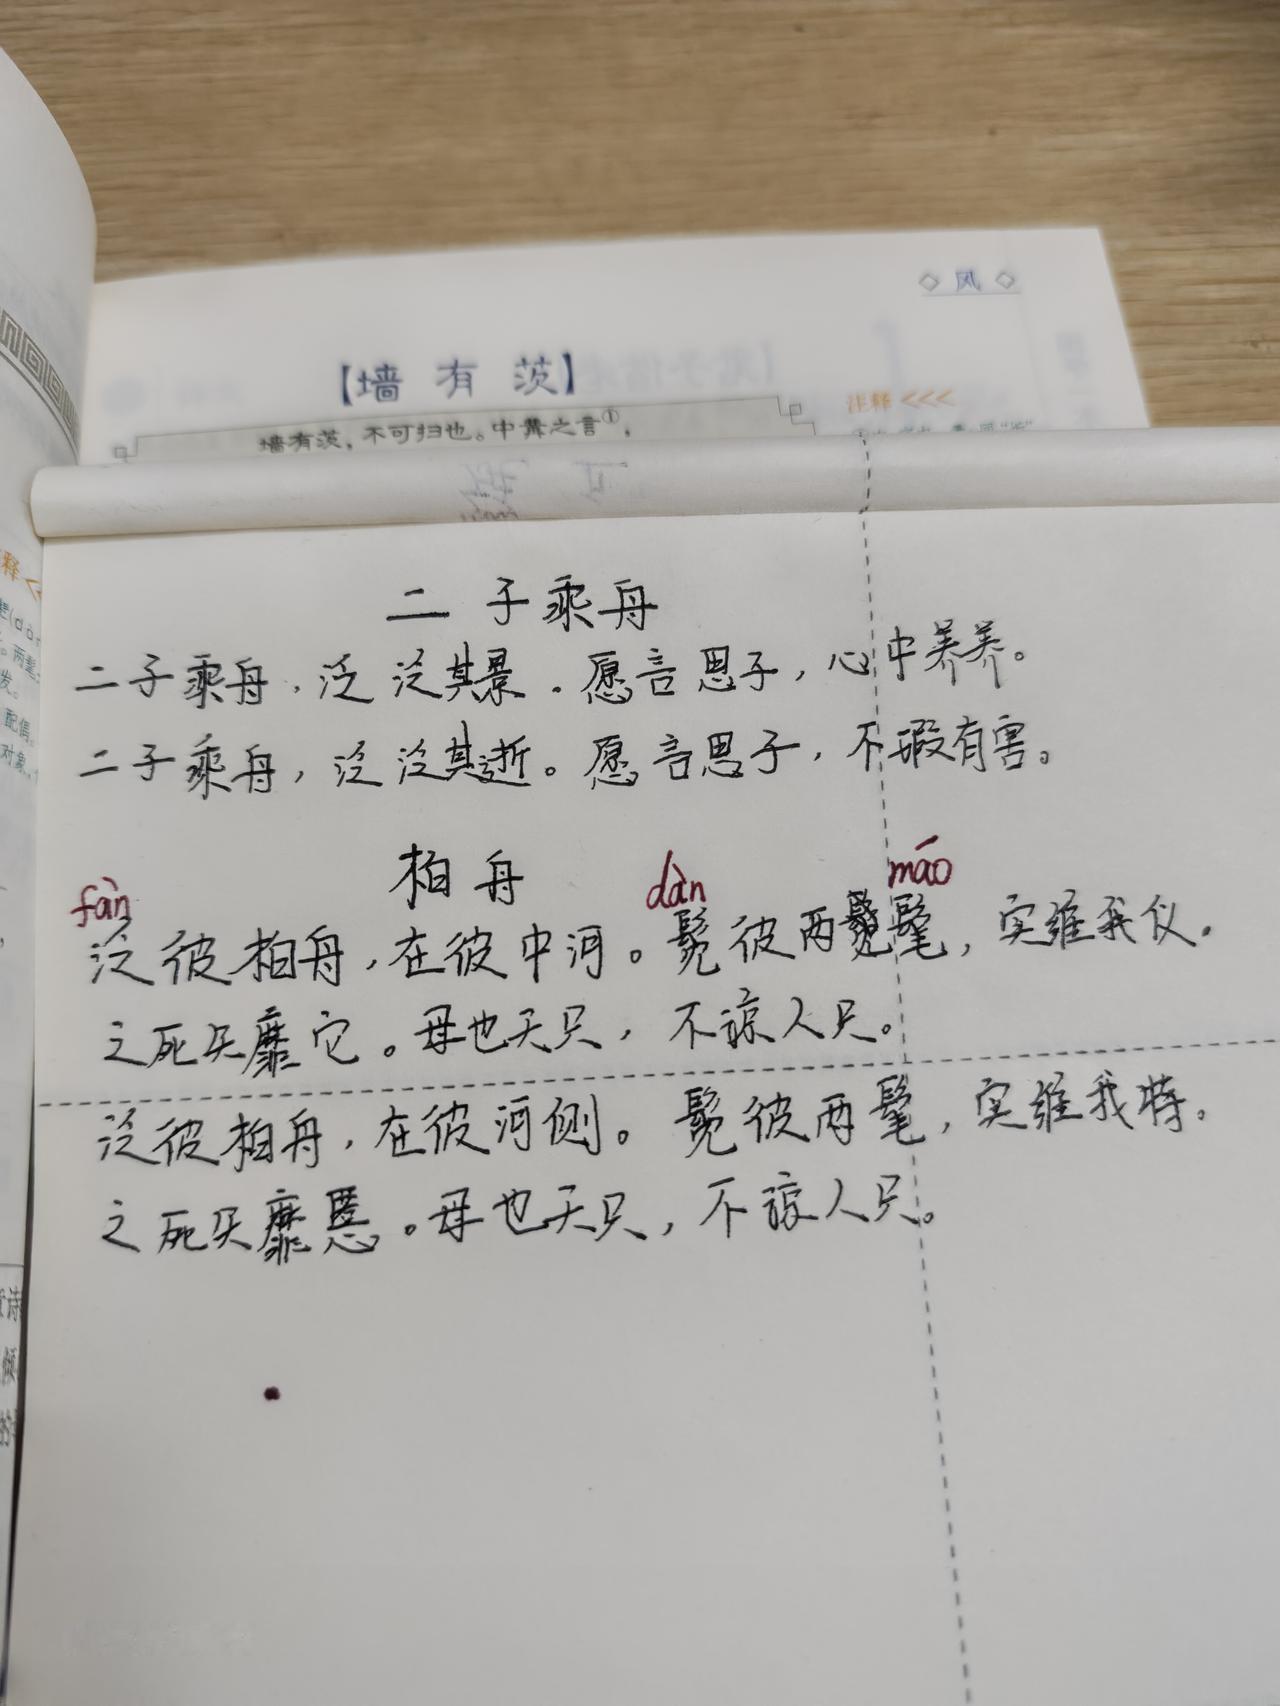 ◇ 风 ◇
【墙有茨】
注释 <<<
墙有茨，不可扫也。中冓之言①，
释 <
配偶。
对象。
发。
二子乘舟
二子乘舟，泛泛其景。愿言思子，心中养养。
二子乘舟，泛泛其逝。愿言思子，不瑕有害。
柏舟
fàn dàn máo
泛彼柏舟，在彼中河。髧彼两髦，实维我仪。
之死矢靡它。母也天只，不谅人只。
泛彼柏舟，在彼河侧。髧彼两髦，实维我特。
之死矢靡慝。母也天只，不谅人只。